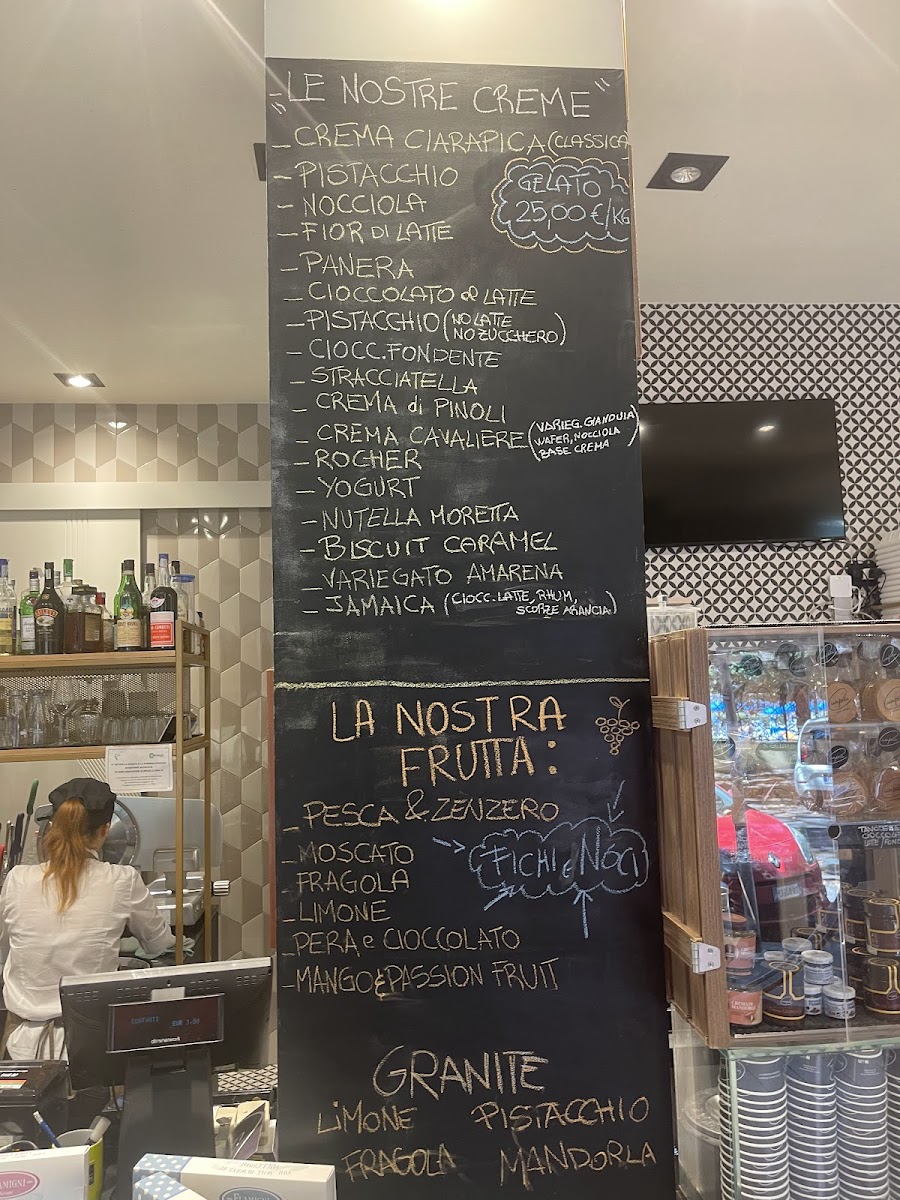 "LE NOSTRE CREME"
- CREMA CIARAPICA (CLASSICA)
- PISTACCHIO
GELATO
25,00 €/KG
- NOCCIOLA
- FIOR DI LATTE
- PANERA
- CIOCCOLATO al LATTE
- PISTACCHIO (NO LATTE
NO ZUCCHERO)
- CIOCC. FONDENTE
- STRACCIATELLA
- CREMA di PINOLI
- CREMA CAVALIERE (VARIEG. GIANDUIA
WAFER, NOCCIOLA
BASE CREMA)
- ROCHER
- YOGURT
- NUTELLA MORETTA
- BISCUIT CARAMEL
- VARIEGATO AMARENA
- JAMAICA (CIOCC. LATTE, RHUM,
SCORZE ARANCIA)
LA NOSTRA
FRUTTA:
- PESCA & ZENZERO
- MOSCATO
FICHI e NOCI
- FRAGOLA
- LIMONE
- PERA e CIOCCOLATO
- MANGO & PASSION FRUIT
GRANITE
LIMONE PISTACCHIO
FRAGOLA MANDORLA
CONTANTI EUR 3.00
FLAMIGNI